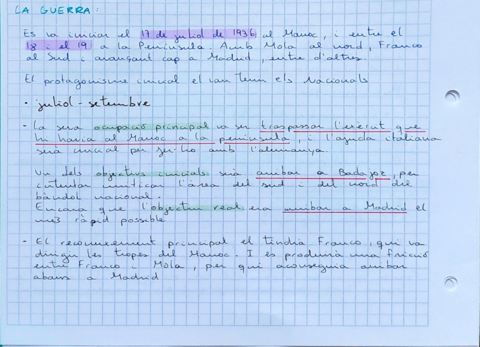 LA GUERRA:
Es va iniciar el 17 de juliol de 1936 al Marroc, i entre el
18 i el 19 a la Península. Amb Mola al nord, Franco
al Sud i avançant cap a Madrid, entre d'altres.
El protagonisme inicial el van tenir els Nacionals
• juliol - setembre
- La seva ocupació principal va ser traspassar l'exèrcit que
hi havia al Marroc a la península, i l'ajuda italiana
serà inicial per fer-ho amb l'alemanya.
Un dels objectius inicials serà arribar a Badajoz, per
intentar unificar l'àrea del sud i del nord del
bàndol nacional.
Encara que l'objectiu real era arribar a Madrid el
més ràpid possible
- El reconeixement principal el tindria Franco, qui va
dirigir les tropes del Marroc. I es produirà una fricció
entre Franco i Mola, per qui aconseguia arribar
abans a Madrid